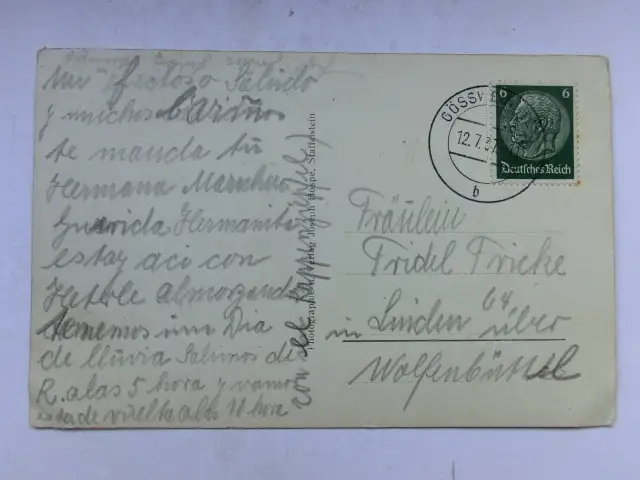 un festoso Saludo
y muchos Cariños
te manda tu
Hermana
Querida Hermanita
estay aci con
almorzando
tememos um Dia
de lluvia Salimos de
R. a las 5 hora y vamos
de vuelta a las 10 hora
con el
Photographie u. Verlag Josef Hospe, Staffelstein
GÖSSW
12.7.37
b
6 6
Deutsches Reich
Fräulein
Fridel Fricke
in Linden 64 über
Wolfenbüttel